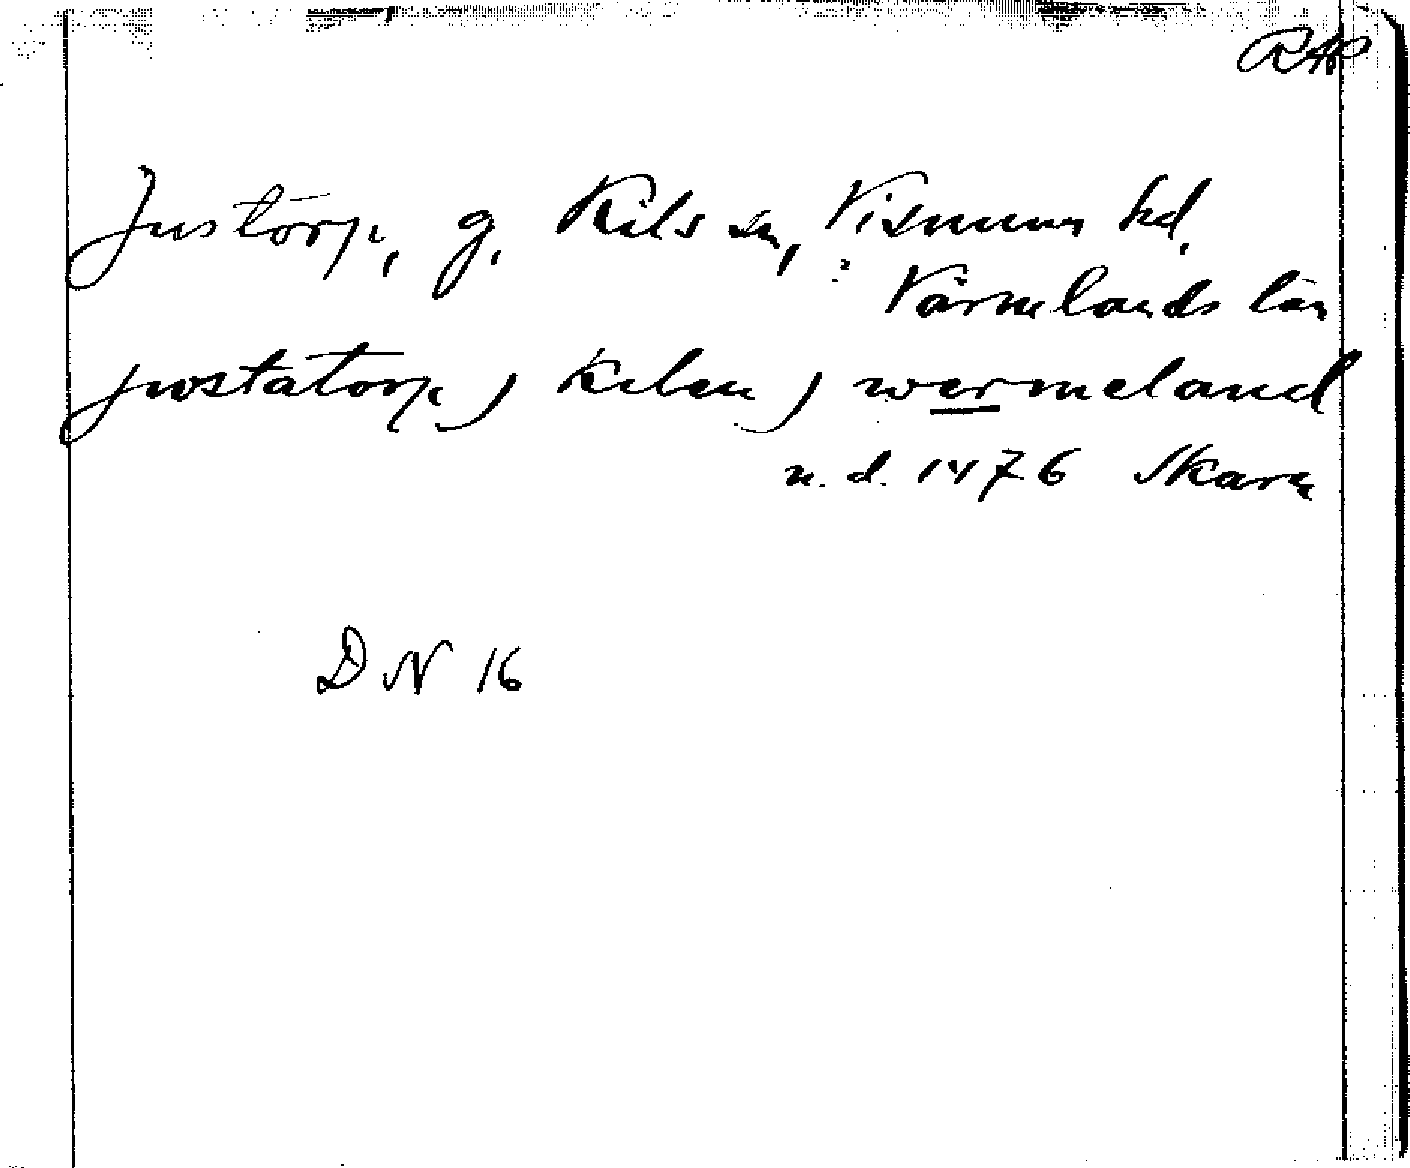 RAP
Justorp, g. Kils sn, Visnums hd,
Värmlands län
jwstatorp, Kilsn, wermeland
u. d. 1476 Skara
DN 16